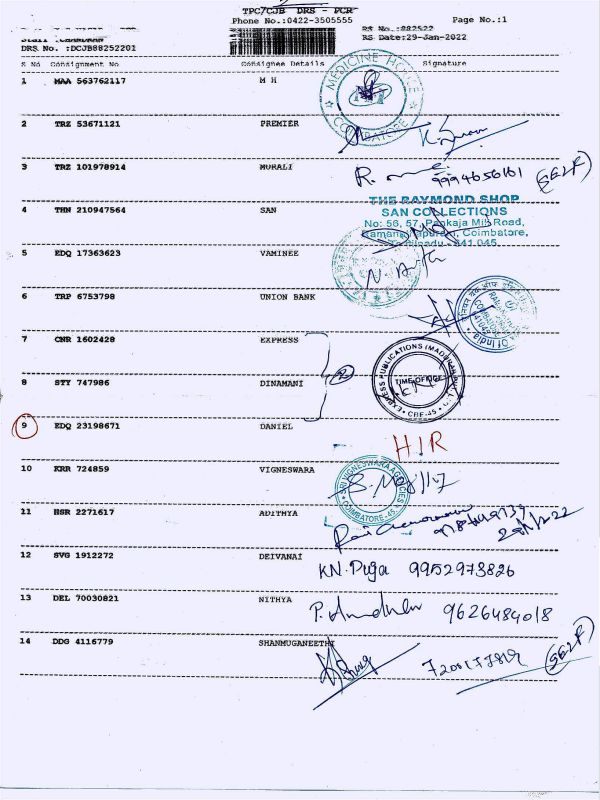 TPC/CJB DRS - PCR
Phone No.:0422-3505555 Page No.:1
RS No.:882522
Staff :CHANDRAN
DRS No. :DCJB88252201 RS Date:29-Jan-2022
S No Consignment No Consignee Details Signature
1 MAA 563762117 M H
MEDICINE HOUSE
COIMBATORE
2 TRZ 53671121 PREMIER
3 TRZ 101978914 MURALI
9994656161 (SELF)
4 THN 210947564 SAN
THE RAYMOND SHOP
SAN COLLECTIONS
No: 56, 57, Pankaja Mill Road,
Ramanathapuram, Coimbatore,
Tamilnadu - 641 045
5 EDQ 17363623 VAMINEE
6 TRP 6753798 UNION BANK
of India
7 CNR 1602428 EXPRESS
EXPRESS PUBLICATIONS (MADURAI)
TIME OFFICE
CBE-45
8 STY 747986 DINAMANI
2
9 EDQ 23198671 DANIEL
HIR
10 KRR 724859 VIGNESWARA
SRI VIGNESWARA AGENCIES
COIMBATORE-45
11 HSR 2271617 ADITHYA
12 SVG 1912272 DEIVANAI
KN. Puja 9952973826
13 DEL 70030821 NITHYA
9626484018
14 DDG 4116779 SHANMUGANEETHI
(SELF)